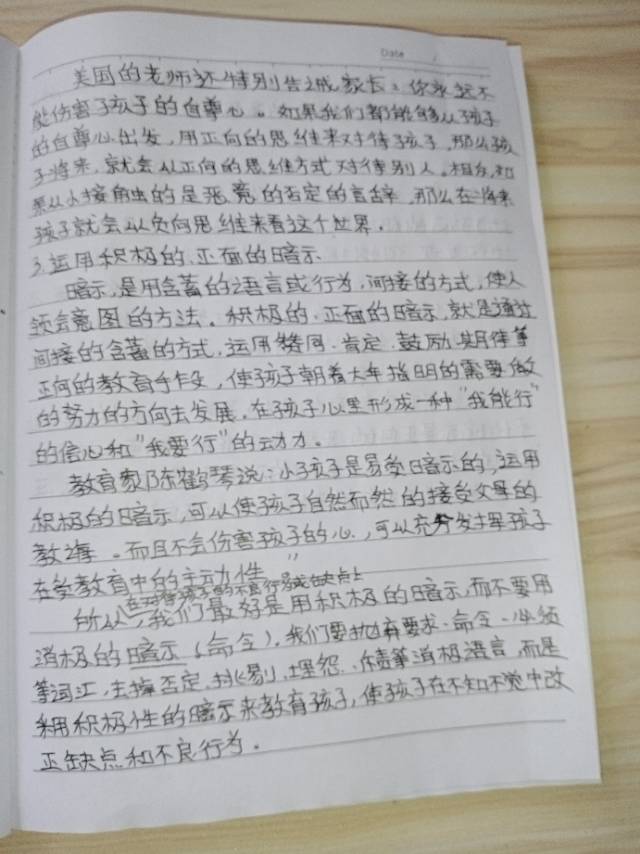 Date
美国的老师还特别告诫家长：你永远不
能伤害了孩子的自尊心。如果我们都能够从孩子
的自尊心出发，用正向的思维来对待孩子，那么孩
子将来，就会从正向的思维方式对待别人。相反，如
果从小接触的是 的否定的言辞，那么在将来
孩子就会从负向思维来看这个世界。
3.运用积极的、正面的暗示
暗示，是用含蓄的语言或行为，间接的方式，使人
领会意图的方法。积极的、正面的暗示，就是通过
间接的含蓄的方式，运用赞同、肯定、鼓励、期待等
正向的教育手段，使孩子朝着大人指明的需要做
的努力的方向去发展，在孩子心里形成一种“我能行”
的信心和“我要行”的动力。
教育家陈鹤琴说：小孩子是易受暗示的，运用
积极的暗示，可以使孩子自然而然的接受父母的
教诲。而且不会伤害孩子的心，可以充分发挥孩子
在受教育中的主动性”
在对待孩子的不良行为或在缺点上
所以，我们最好是用积极的暗示，而不要用
消极的暗示（命令）。我们要抛弃要求、命令、必须
等词汇，去掉否定、挑剔、埋怨、 责等消极语言，而是
采用积极性的暗示来教育孩子，使孩子在不知不觉中改
正缺点和不良行为。